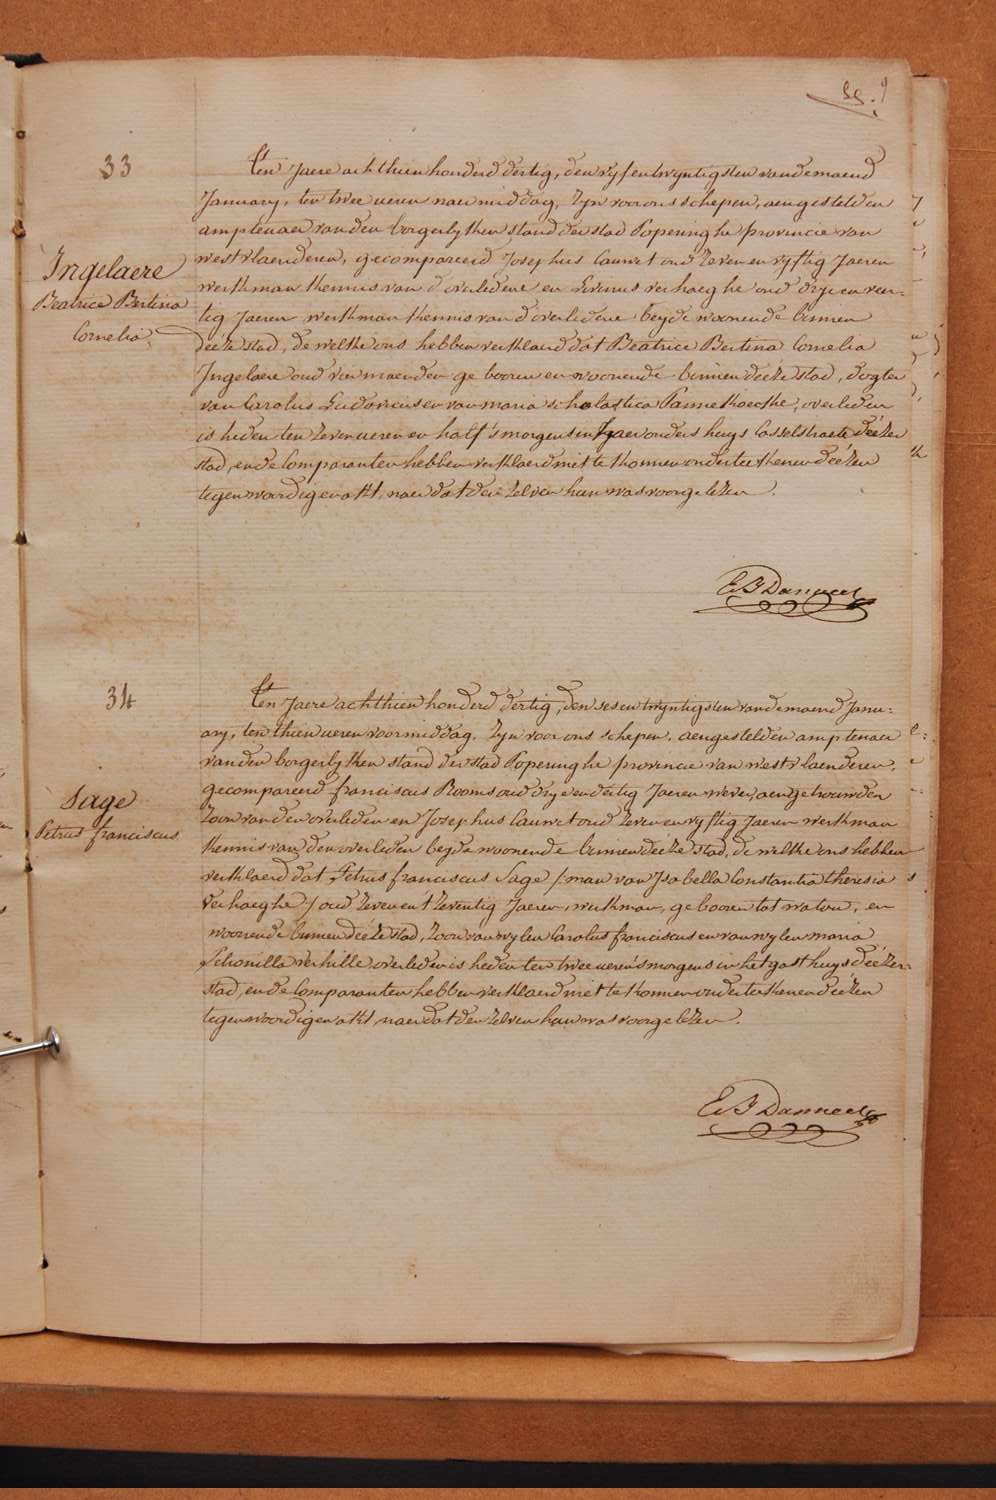 33
Ingelaere
Beatrice Bertina
Cornelia
Ten Jaere achthien honderd dertig, den vyf en twyntigsten van de maend
January, ten twee ueren naer middag, Zyn voor ons schepen, aengestelden
amptenaer van den borgerlyken stand der stad Poperinghe provincie van
westvlaenderen, gecompareerd Josephus Cauwet oud Zeven en vyftig Jaeren
werkman kennis van d'overledene en Livinus verhaeghe oud drye en veer-
tig Jaeren werkman kennis van d'overledene beyde woonende binnen
deeze stad, de welke ons hebben verklaerd dat Beatrice Bertina Cornelia
Ingelaere oud vier maenden gebooren en woonende binnen deeze stad, dogter
van Carolus Ludovicus en van maria scholastica Pannekoecke, overleden
is heden ten Zeven ueren en half 's morgens in haer ouders huys Casselstraete deézer
stad, en de Comparanten hebben verklaerd niet te konnen onderteekenen deézen
tegenwoordigen akt, naer dat deézelven hun was voorgelezen.
E B Danneel
34
Sage
Petrus franciscus
Ten Jaere achthien honderd dertig, den ses en twyntigsten van de maend Janu-
ary, ten thien ueren voormiddag, Zyn voor ons schepen, aengestelden amptenaer
van den borgerlyken stand der stad Poperinghe provincie van westvlaenderen,
gecompareerd franciscus Rooms oud drye en dertig Jaeren wever, aengetrouwden
Zoon van den overleden en Josephus Cauwet oud Zeven en vyftig Jaeren werkman
kennis van den overleden beyde woonende binnen deeze stad, de welke ons hebben
verklaerd dat Petrus franciscus Sage /: man van Isabella Constantia theresia
verhaeghe :/ oud Zeven en t'Zeventig Jaeren, werkman, gebooren tot watou, en
woonende binnen deéze stad, Zoon van wylen Carolus franciscus en van wylen maria
Petronilla verhille overleden is heden ten twee ueren 's morgens in het gasthuys deézer
stad, en de Comparanten hebben verklaerd niet te konnen onderteekenen deézen
tegenwoordigen akt, naer dat den Zelven hun was voorgelezen.
E B Danneel